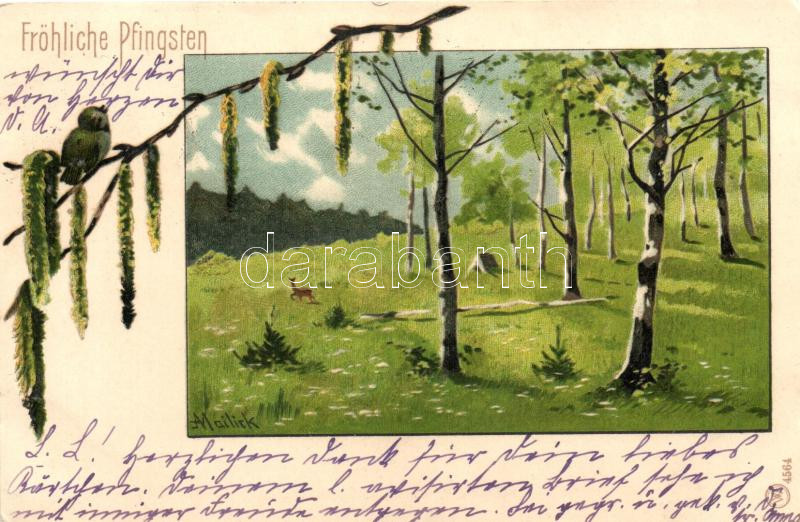 Fröhliche Pfingsten
wünscht Dir
von Herzen
D. A.
darabanth.com
AMailick
L. L! Herzlichen Dank für Dein liebes
Kärtchen. Deinem l. avisirten Brief sehe ich
mit inniger Freude entgegen. Sei gegr. u. gek. v. D.
4564